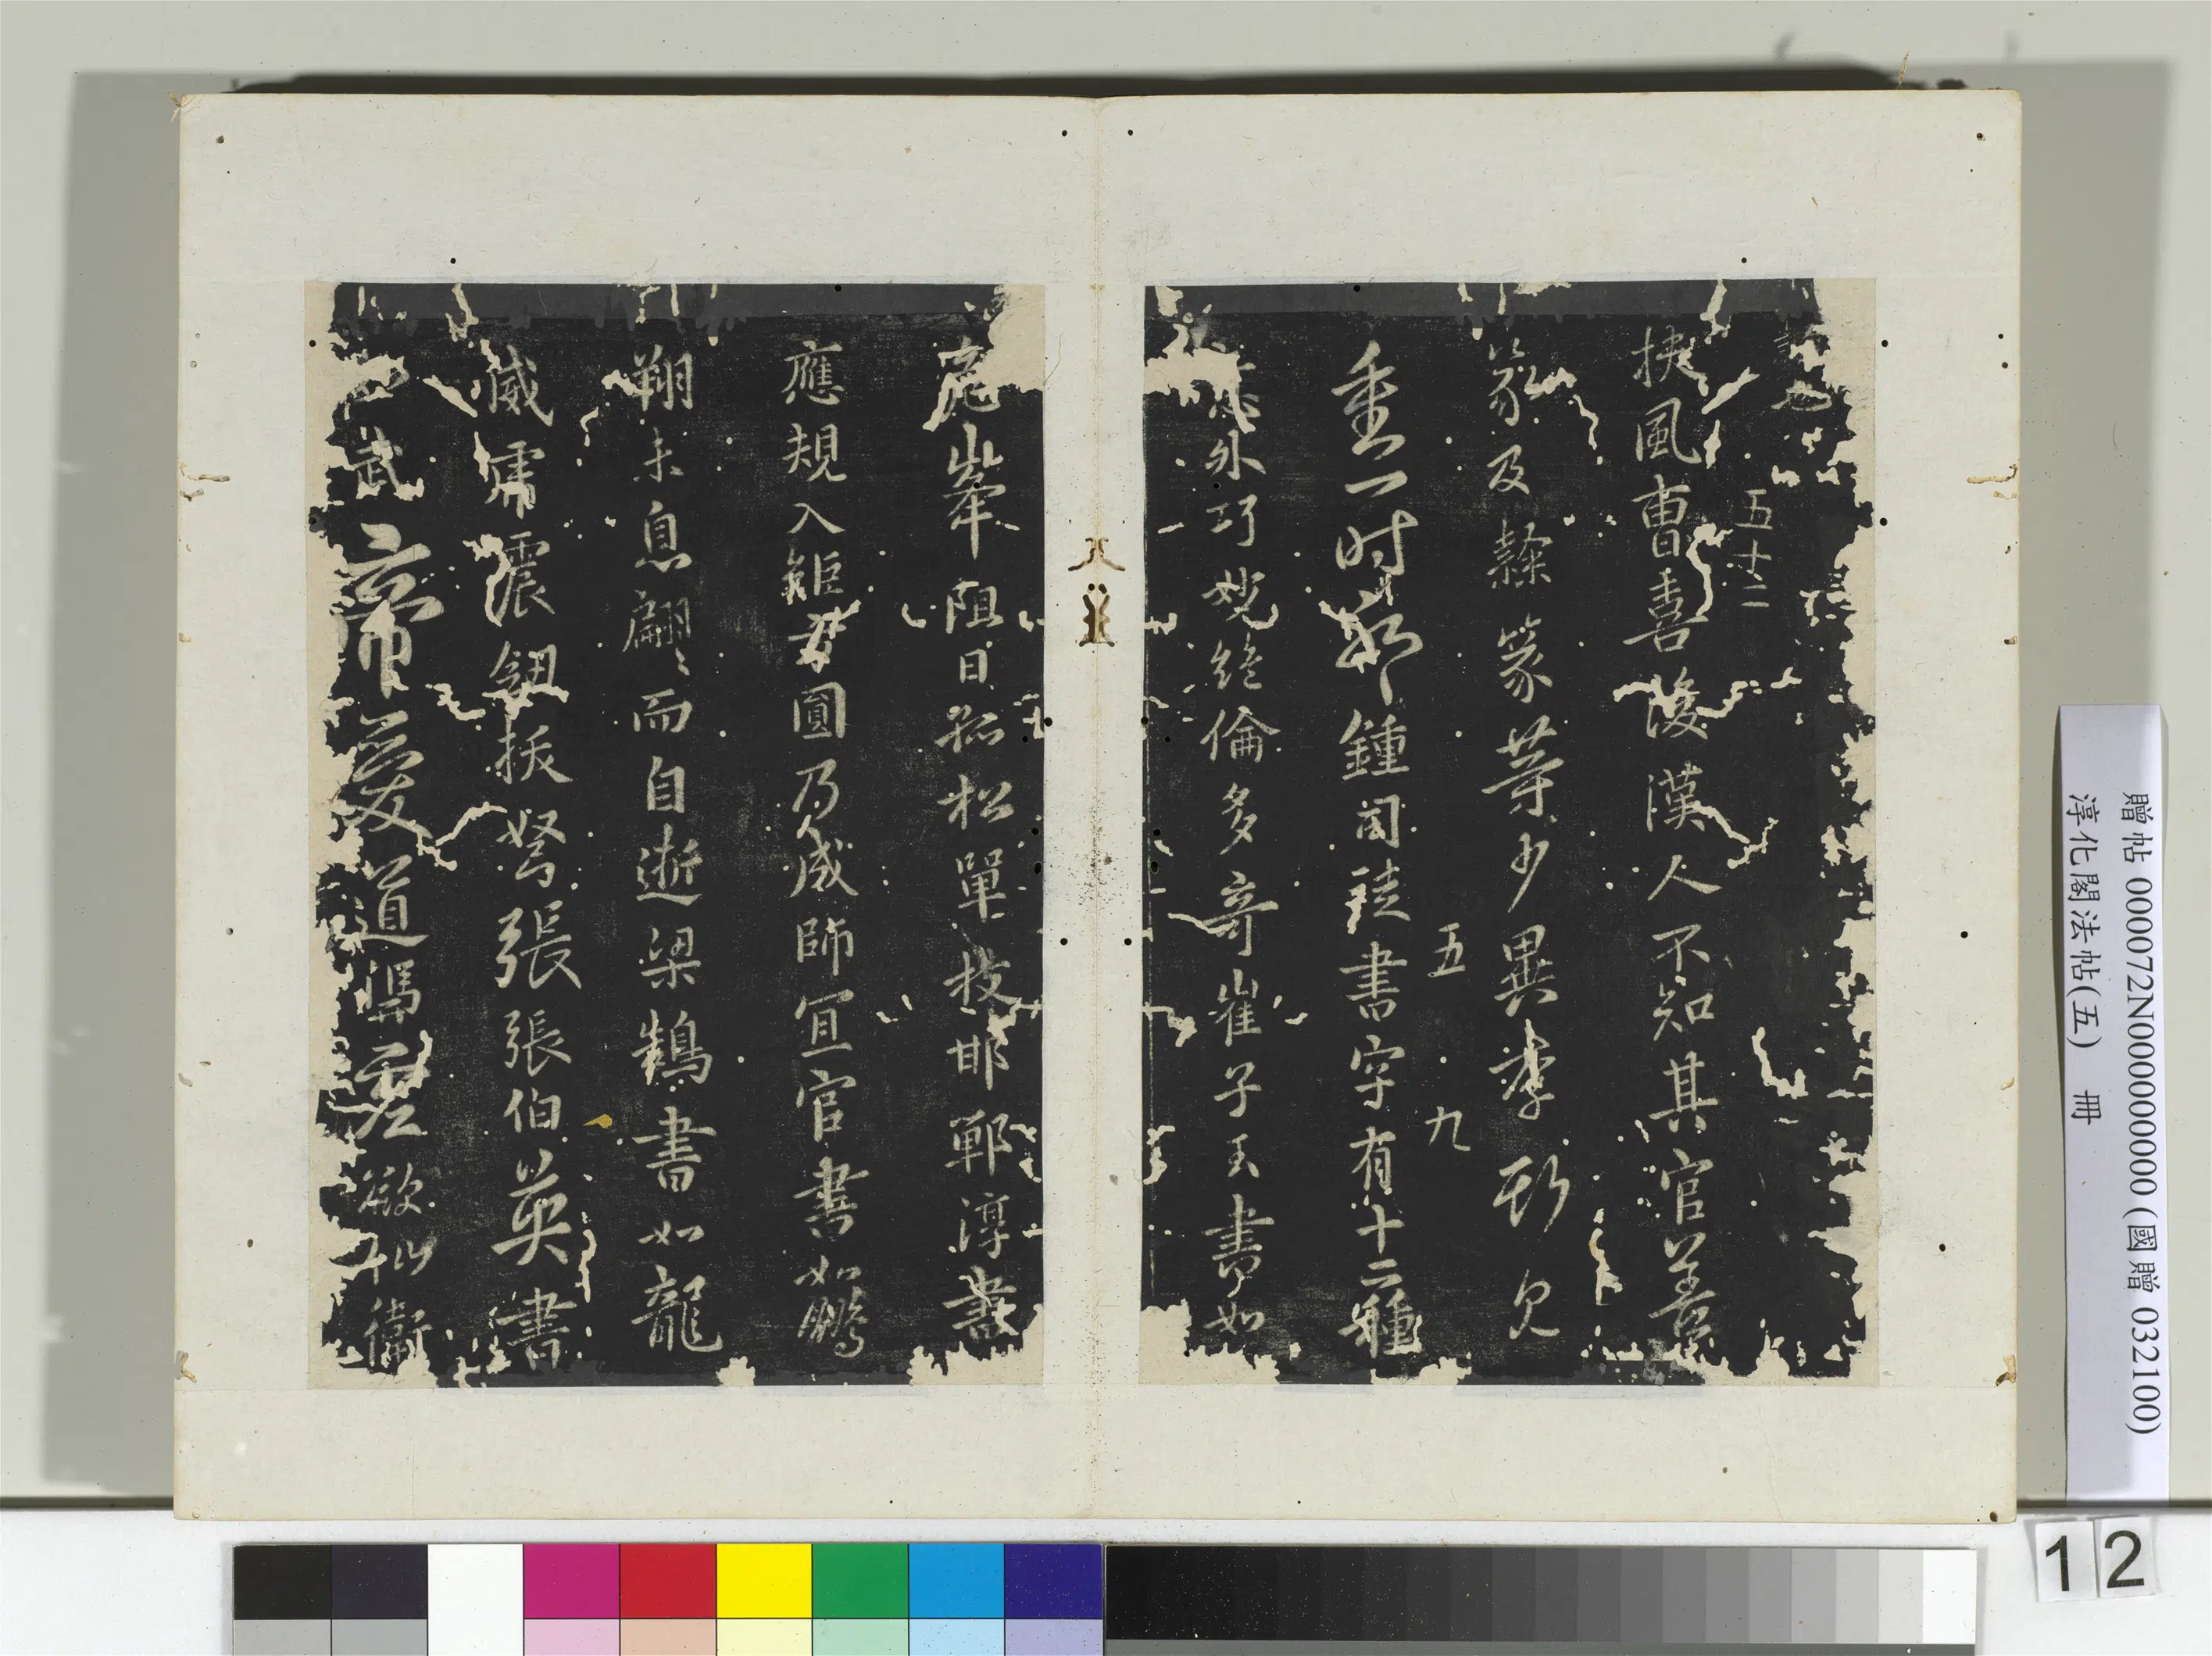 五十二
扶風曹喜後漢人不知其官善
篆及隸篆等少異李斯見
五
九
重一時邪鍾司徒書字有十二種
意外巧妙絕倫多奇崔子玉書如
危峯阻日孤松單枝邯鄲淳書
應規入矩方圓乃成師宜官書如鵬
翔未息翩〻而自逝梁鵠書如龍
威虎震劒拔弩張張伯英書
武帝愛道憑虛欲仙衛
贈帖 000072N000000000 (國贈 032100)
淳化閣法帖(五) 冊
12